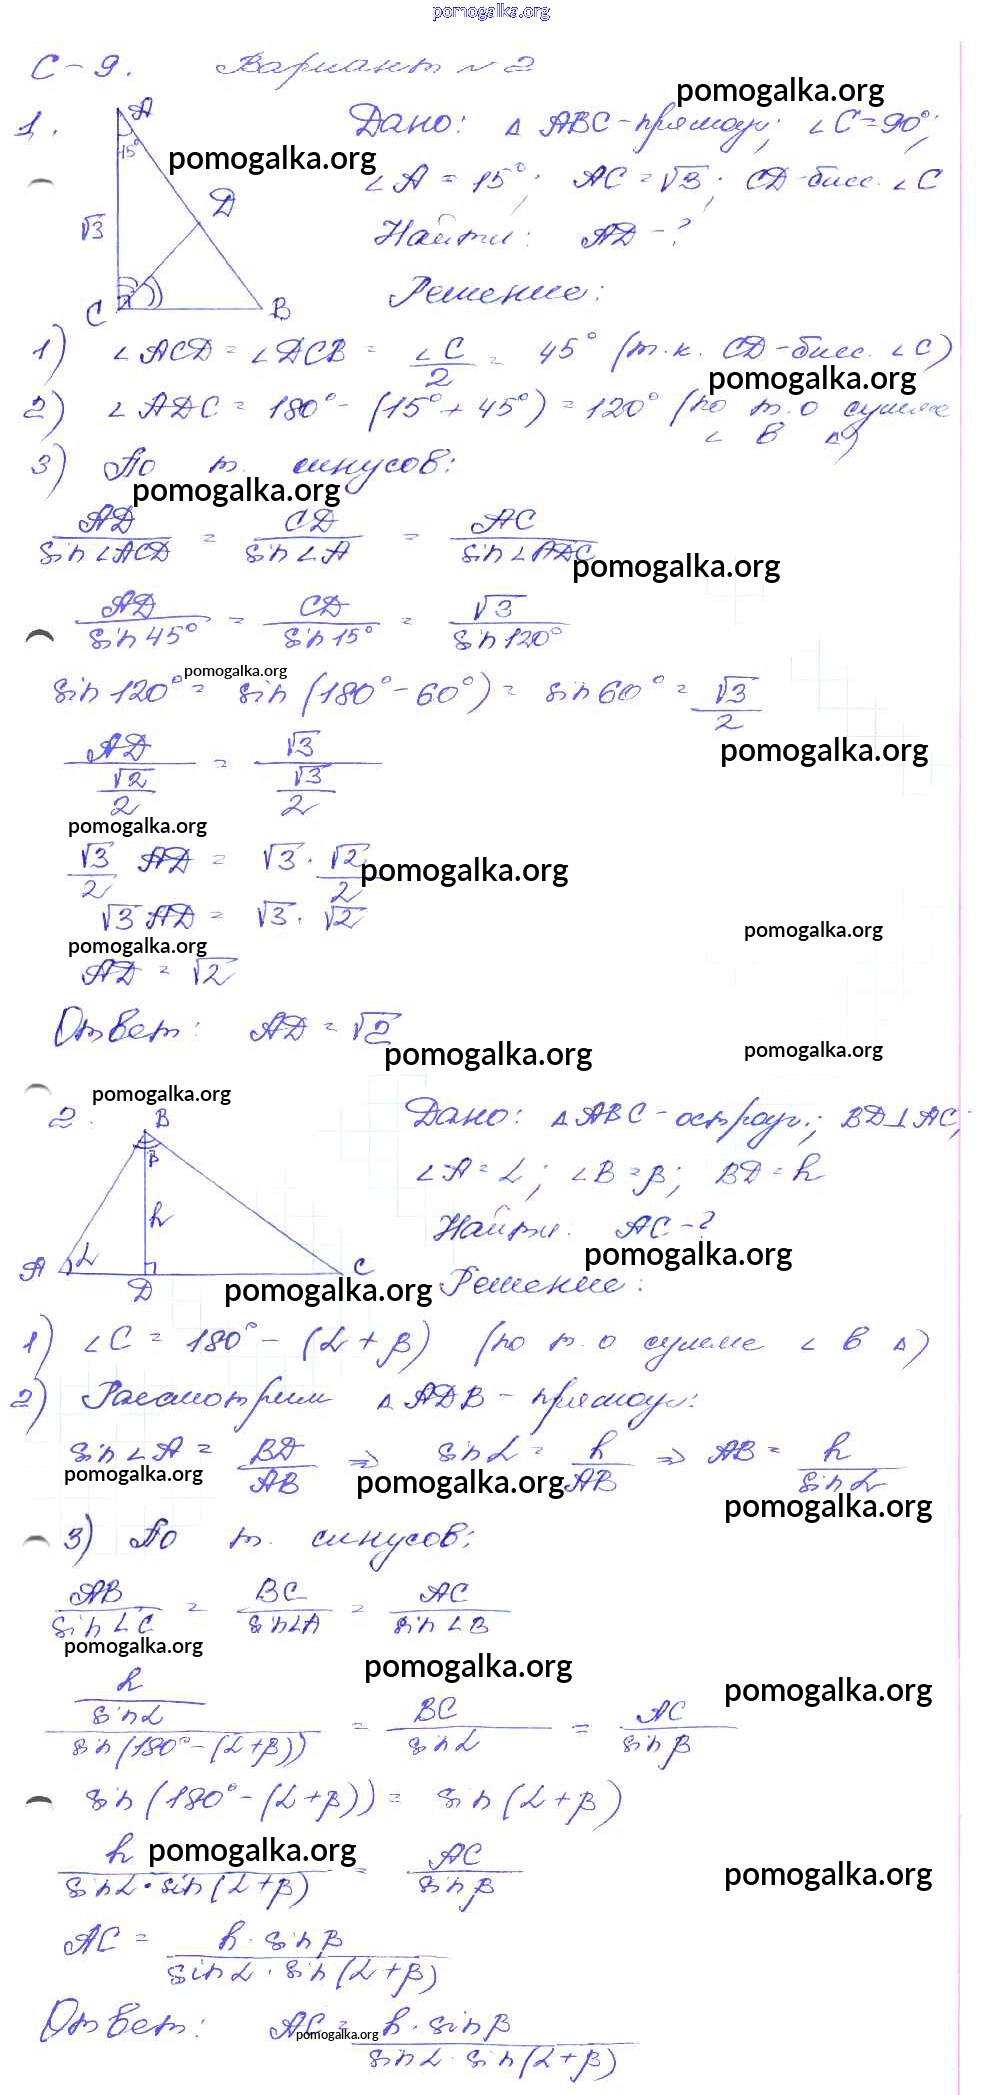 pomogalka.org
С-9. Вариант №2
pomogalka.org
1. Дано: △ ABC-прямоуг; ∠C=90°;
A
15°
pomogalka.org
∠A = 15°; AC=√3; CD-бисс. ∠C
D
√3
Найти: AD-?
Решение:
C B
1) ∠ACD = ∠DCB = ∠C/2 = 45° (т.к. CD-бисс. ∠C)
pomogalka.org
2) ∠ADC = 180°-(15°+45°) = 120° (по т. о сумме
∠ в △)
3) По т. синусов:
pomogalka.org
AD/sin∠ACD = CD/sin∠A = AC/sin∠ADC
pomogalka.org
AD/sin45° = CD/sin15° = √3/sin120°
pomogalka.org
sin120° = sin(180°-60°) = sin60° = √3/2
pomogalka.org
AD/(√2/2) = √3/(√3/2)
pomogalka.org
√3/2 AD = √3 · √2/2
pomogalka.org
√3 AD = √3 · √2
pomogalka.org
pomogalka.org
AD = √2
Ответ: AD = √2
pomogalka.org
pomogalka.org
pomogalka.org
2. Дано: △ABC-остроуг.; BD⊥AC;
B
β
∠A=α; ∠B=β; BD=h
h
Найти: AC-?
pomogalka.org
A α D C
Решение:
pomogalka.org
1) ∠C = 180°-(α+β) (по т. о сумме ∠ в △)
2) Рассмотрим △ADB-прямоуг:
sin∠A = BD/AB ⇒ sinα = h/AB ⇒ AB = h/sinα
pomogalka.org
pomogalka.org
pomogalka.org
3) По т. синусов:
AB/sin∠C = BC/sin∠A = AC/sin∠B
pomogalka.org
pomogalka.org
pomogalka.org
(h/sinα)/sin(180°-(α+β)) = BC/sinα = AC/sinβ
sin(180°-(α+β)) = sin(α+β)
pomogalka.org
h/(sinα·sin(α+β)) = AC/sinβ
pomogalka.org
AC = h·sinβ/(sinα·sin(α+β))
Ответ: AC = h·sinβ/(sinα·sin(α+β))
pomogalka.org